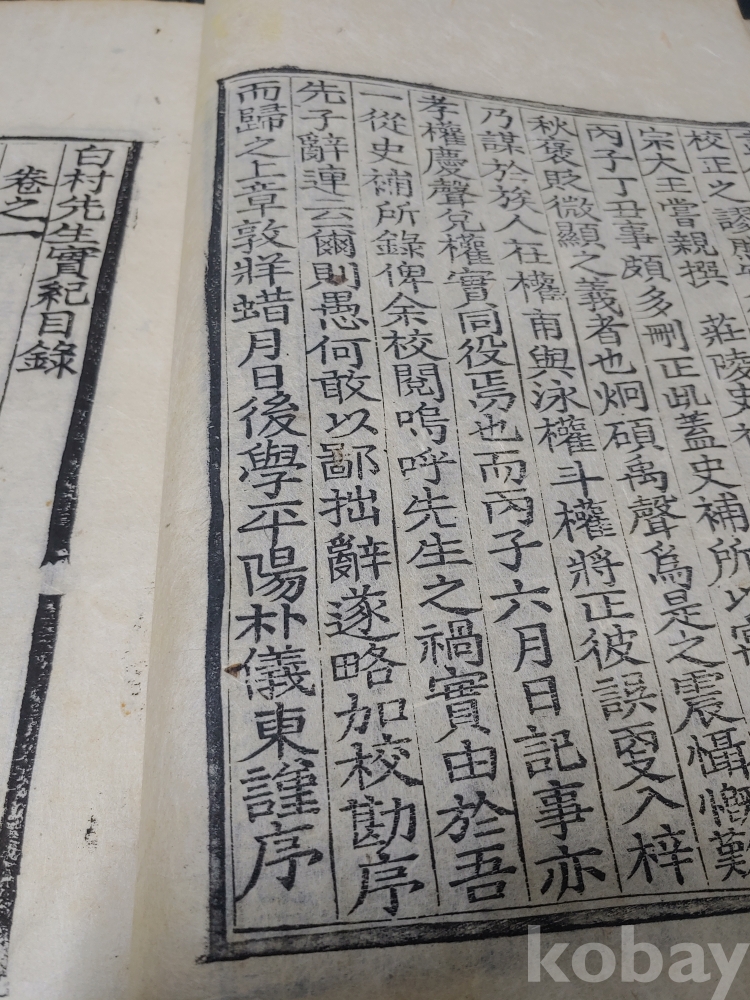 校正之謬
宗大王嘗親撰 莊陵史補
丙子丁丑事頗多刪正此蓋史補所以
秋褒貶微顯之義者也炯碩禹聲爲是之震懾慨難
乃謀於族人在權甯與泳權斗權將正彼誤更入梓
孝權慶聲兌權實同役焉也而丙子六月日記事亦
一從史補所錄俾余校閱嗚呼先生之禍實由於吾
先子辭連云爾則愚何敢以鄙拙辭遂略加校勘序
而歸之上章敦牂蜡月日後學平陽朴儀東謹序
白村先生實紀目錄
卷之一
kobay